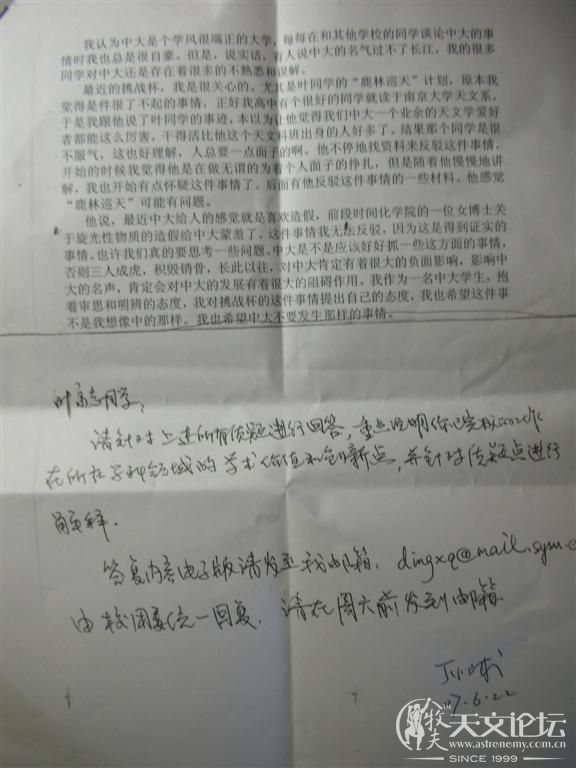 我认为中大是个学风很端正的大学，每每在和其他学校的同学谈论中大的事
情时我也总是很自豪。但是，说实话，有人说中大的名气过不了长江，我的很多
同学对中大还是存在着很多的不熟悉和误解。
最近的挑战杯，我是很关心的。尤其是叶同学的“鹿林巡天”计划，原本我
觉得是件很了不起的事情，正好我高中有个很好的同学就读于南京大学天文系，
于是我跟他说了叶同学的事迹，本以为让他觉得我们中大一个业余的天文学爱好
者都能这么厉害，干得活比他这个天文科班出身的人好多了。结果那个同学是很
不服气，这也好理解，人总要一点面子的啊。他不停地找资料来反驳这件事情，
开始的时候我觉得他是在做无谓的为着个人面子的挣扎，但是随着他慢慢地讲
解，我也开始有点怀疑这件事情了。后面有他反驳这件事情的一些材料。他感觉
“鹿林巡天”可能有问题。
他说，最近中大给人的感觉就是喜欢造假，前段时间化学院的一位女博士关
于旋光性物质的造假给中大蒙羞了。这件事情我无法反驳，因为这是得到证实的
事情。也许我们真的要思考一些问题。中大是不是应该好好抓一些这方面的事情，
否则三人成虎，积毁销骨，长此以往，对中大肯定有着很大的负面影响，影响中
大的名声，肯定会对中大的发展有着很大的阻碍作用。我作为一名中大学生，抱
着审思和明辨的态度，我对挑战杯的这件事情提出自己的态度，我也希望这件事
不是我想像中的那样。我也希望中大不要发生那样的事情。
叶泉志同学，
请针对上述所有质疑进行回答，重点说明你已完成的工作
在所在学科领域的学术价值和创新点，并针对质疑点进行
解释.
答复内容电子版请发至我邮箱，dingxq@mail.sysu.e
由校团委统一回复. 请在周六前发到邮箱
07.6.22
牧夫天文论坛
www.astronomy.com.cn
SINCE 1999